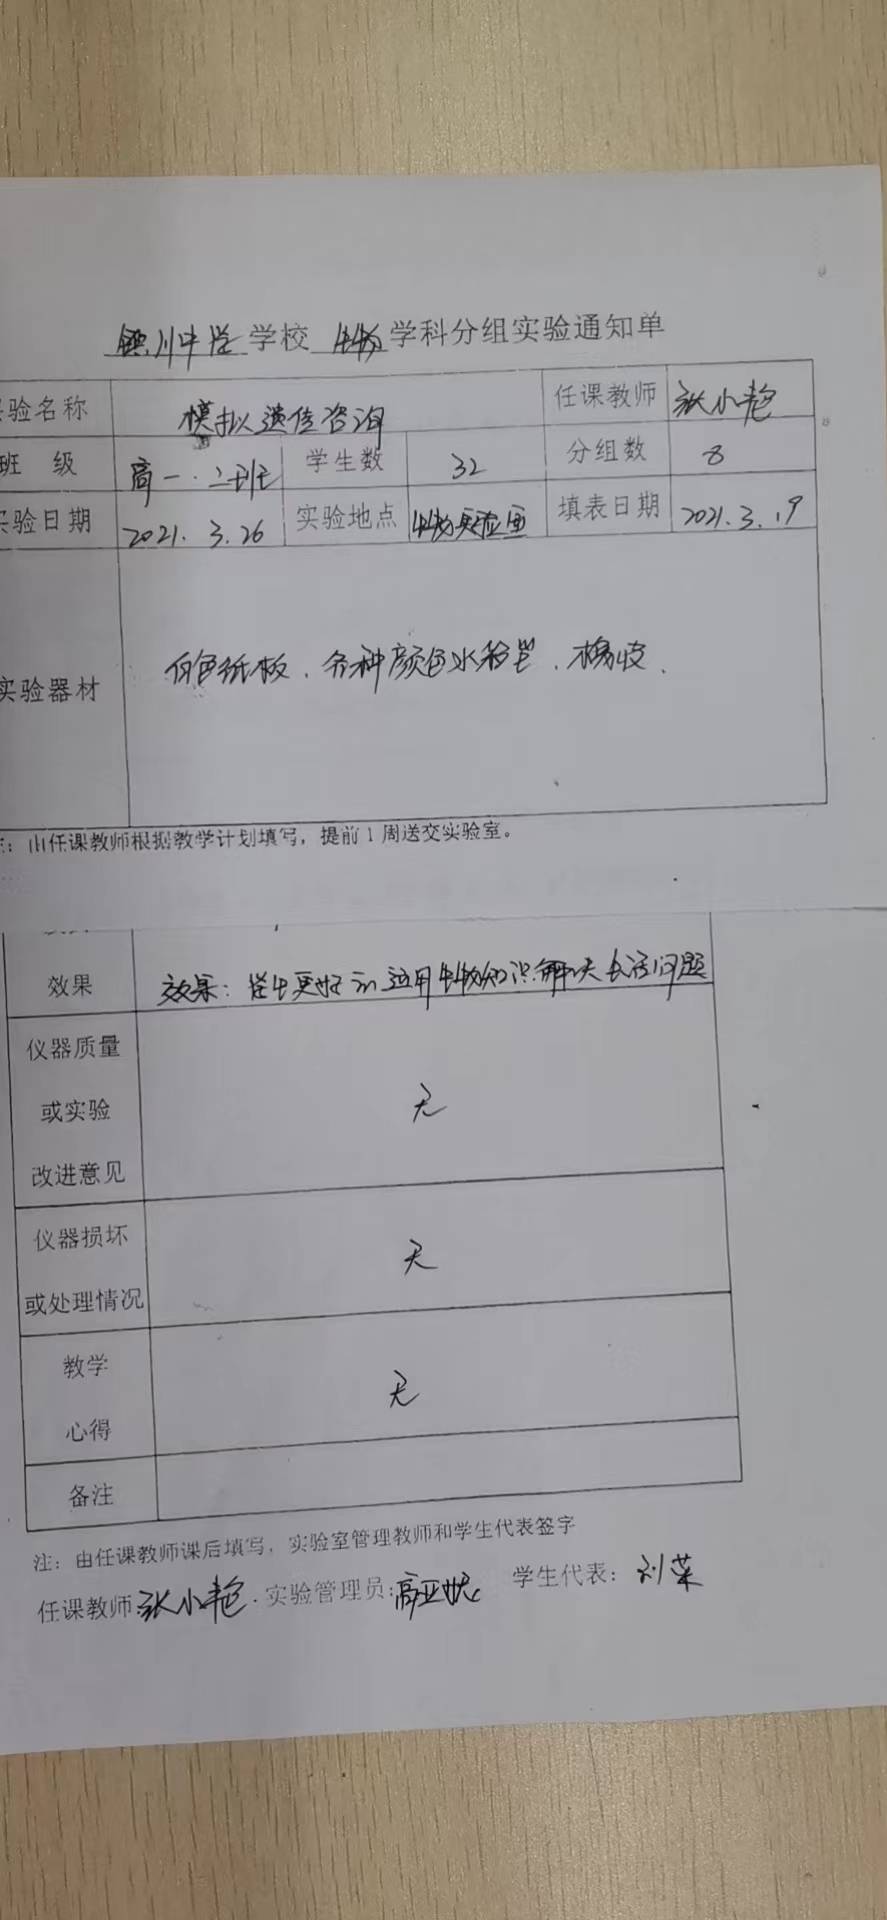 镇川中学学校 生物学科分组实验通知单
验名称 模拟遗传咨询 任课教师 张小艳
班 级 高一.二班 学生数 32 分组数 8
实验日期 2021.3.26 实验地点 生物实验室 填表日期 2021.3.19
实验器材 白色纸板、各种颜色水彩笔、橡皮.
注：由任课教师根据教学计划填写，提前1周送交实验室。
效果 效果：学生更好的运用生物知识解决生活问题
仪器质量
或实验 无
改进意见
仪器损坏 无
或处理情况
教学 无
心得
备注
注：由任课教师课后填写，实验室管理教师和学生代表签字
任课教师 张小艳. 实验管理员：高亚 学生代表：刘荣